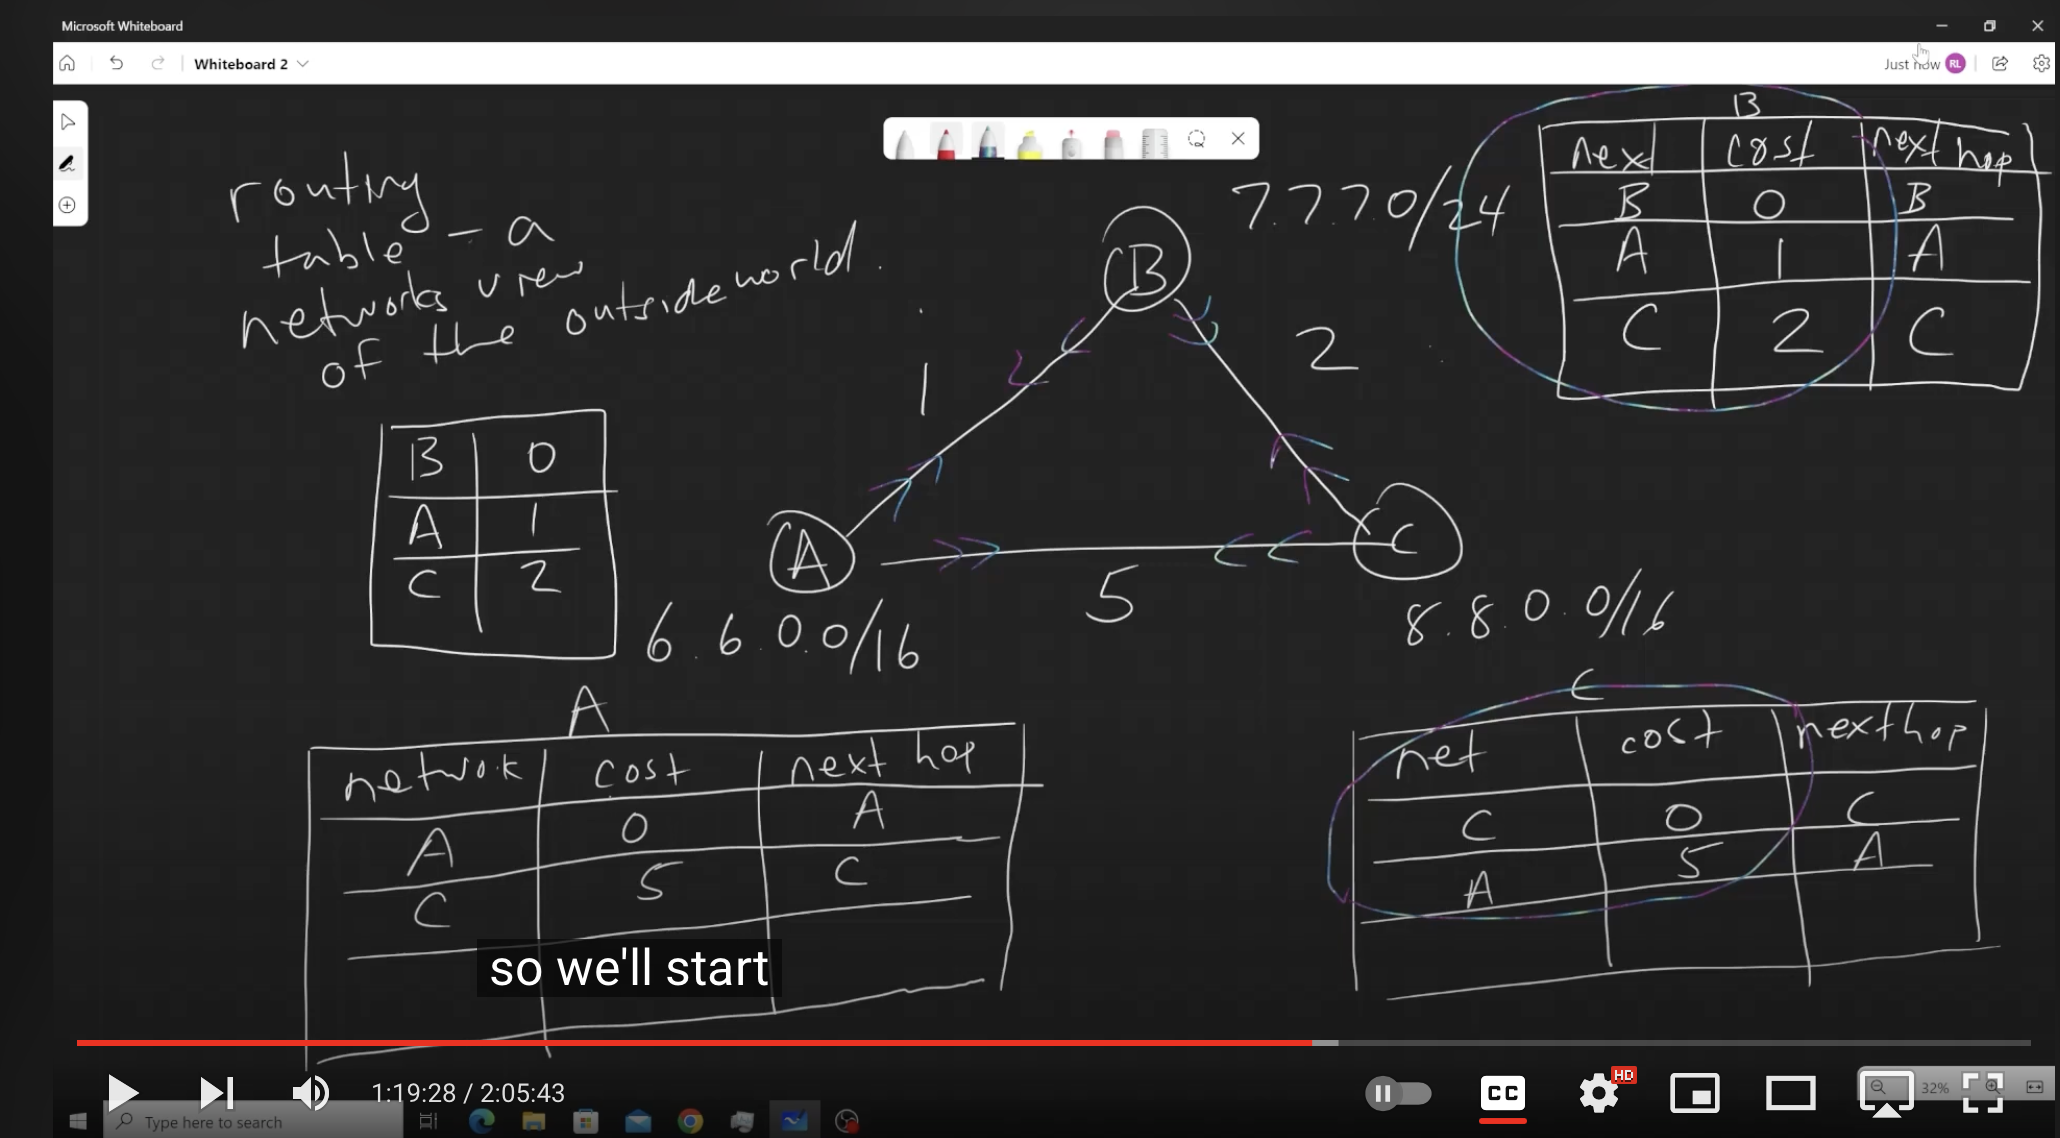 Microsoft Whiteboard
Whiteboard 2
Just now
RL
routing
table - a
networks view
of the outside world.
B
next cost next hop
B 0 B
A 1 A
C 2 C
7.7.7.0/24
B
1
2
B 0
A 1
C 2
A
C
5
6.6.0.0/16
8.8.0.0/16
A
network cost next hop
A 0 A
C 5 C
C
net cost next hop
C 0 C
A 5 A
so we'll start
1:19:28 / 2:05:43
CC
HD
32%
Type here to search